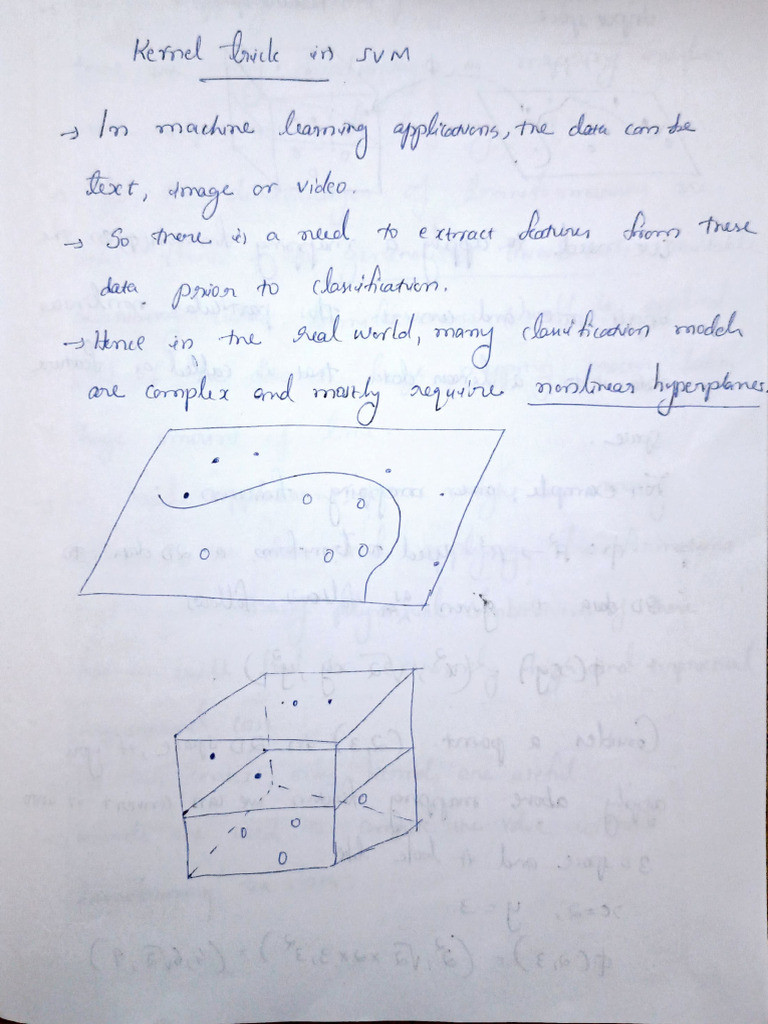 Kernel trick in SVM
→ In machine learning applications, the data can be
text, image or video.
→ So there is a need to extract features from these
data prior to classification.
→ Hence in the real world, many classification models
are complex and mostly require nonlinear hyperplanes.